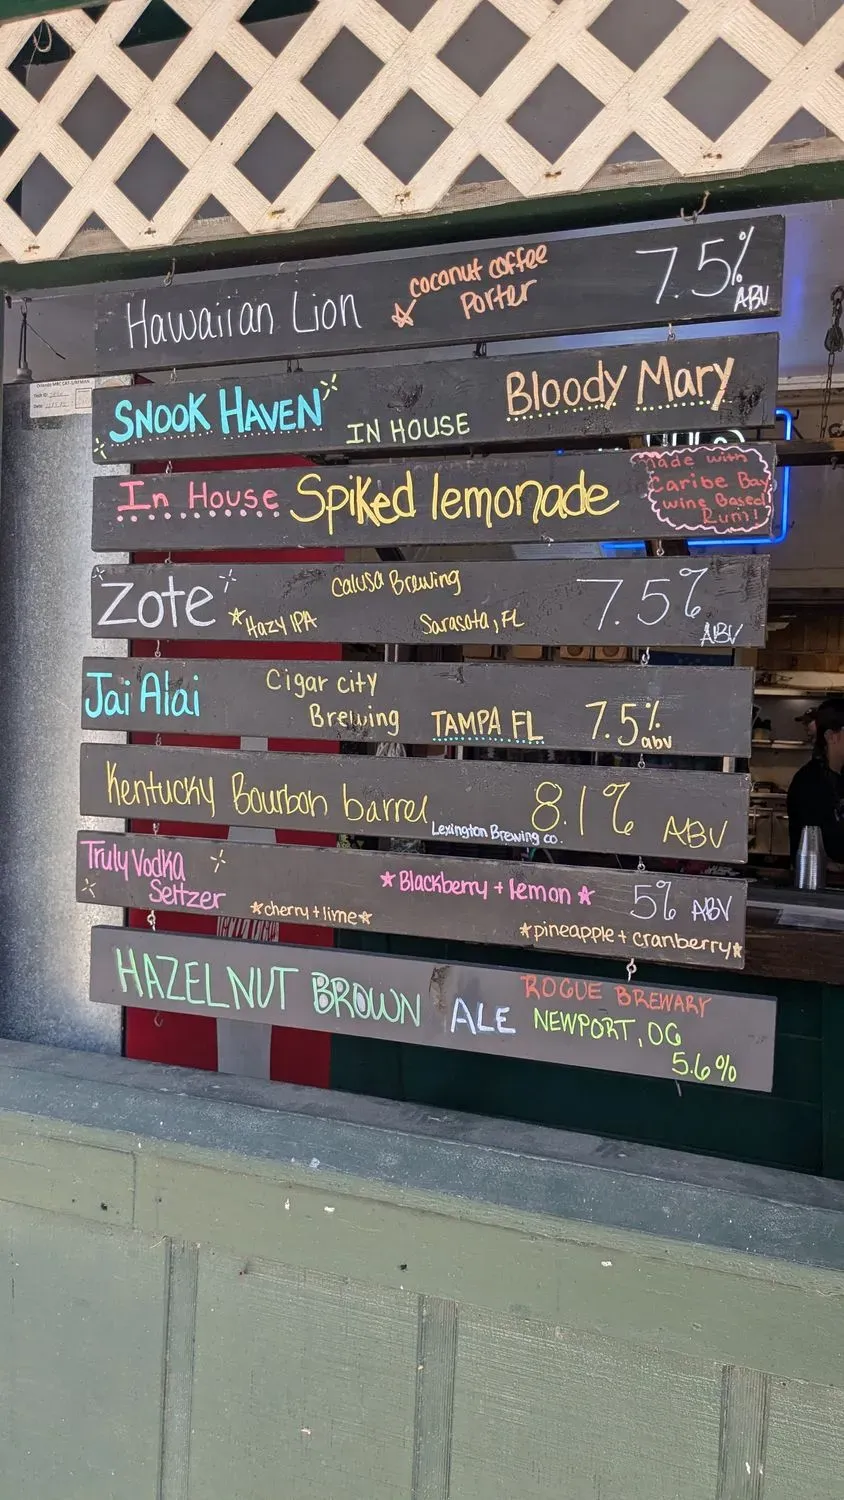 Hawaiian Lion
coconut coffee
Porter
7.5%
ABV
SNOOK HAVEN
IN HOUSE
Bloody Mary
In House
Spiked lemonade
made with
Caribe Bay
wine Based
Rum!
Zote
Hazy IPA
Calusa Brewing
Sarasota, FL
7.5%
ABV
Jai Alai
Cigar city
Brewing
TAMPA FL
7.5%
abv
Kentucky Bourbon barrel
Lexington Brewing co.
8.1% ABV
Truly Vodka
Seltzer
cherry + lime
Blackberry + lemon
5% ABV
pineapple + cranberry
HAZELNUT BROWN ALE
ROGUE BREWARY
NEWPORT, OG
5.6%